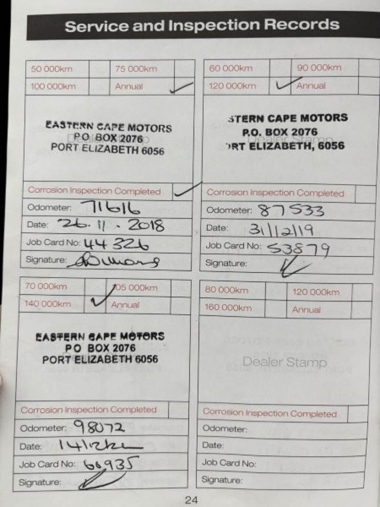 Service and Inspection Records
50 000km 75 000km
100 000km Annual
EASTERN CAPE MOTORS
P.O. BOX 2076
PORT ELIZABETH 6056
Corrosion Inspection Completed
Odometer: 71616
Date: 26.11.2018
Job Card No: 44326
Signature:
60 000km 90 000km
120 000km Annual
STERN CAPE MOTORS
P.O. BOX 2076
RT ELIZABETH, 6056
Corrosion Inspection Completed
Odometer: 87533
Date: 31/12/19
Job Card No: 53879
Signature:
70 000km 105 000km
140 000km Annual
EASTERN CAPE MOTORS
P O BOX 2076
PORT ELIZABETH 6056
Corrosion Inspection Completed
Odometer: 98072
Date:
Job Card No: 66935
Signature:
80 000km 120 000km
160 000km Annual
Dealer Stamp
Corrosion Inspection Completed
Odometer:
Date:
Job Card No:
Signature:
24